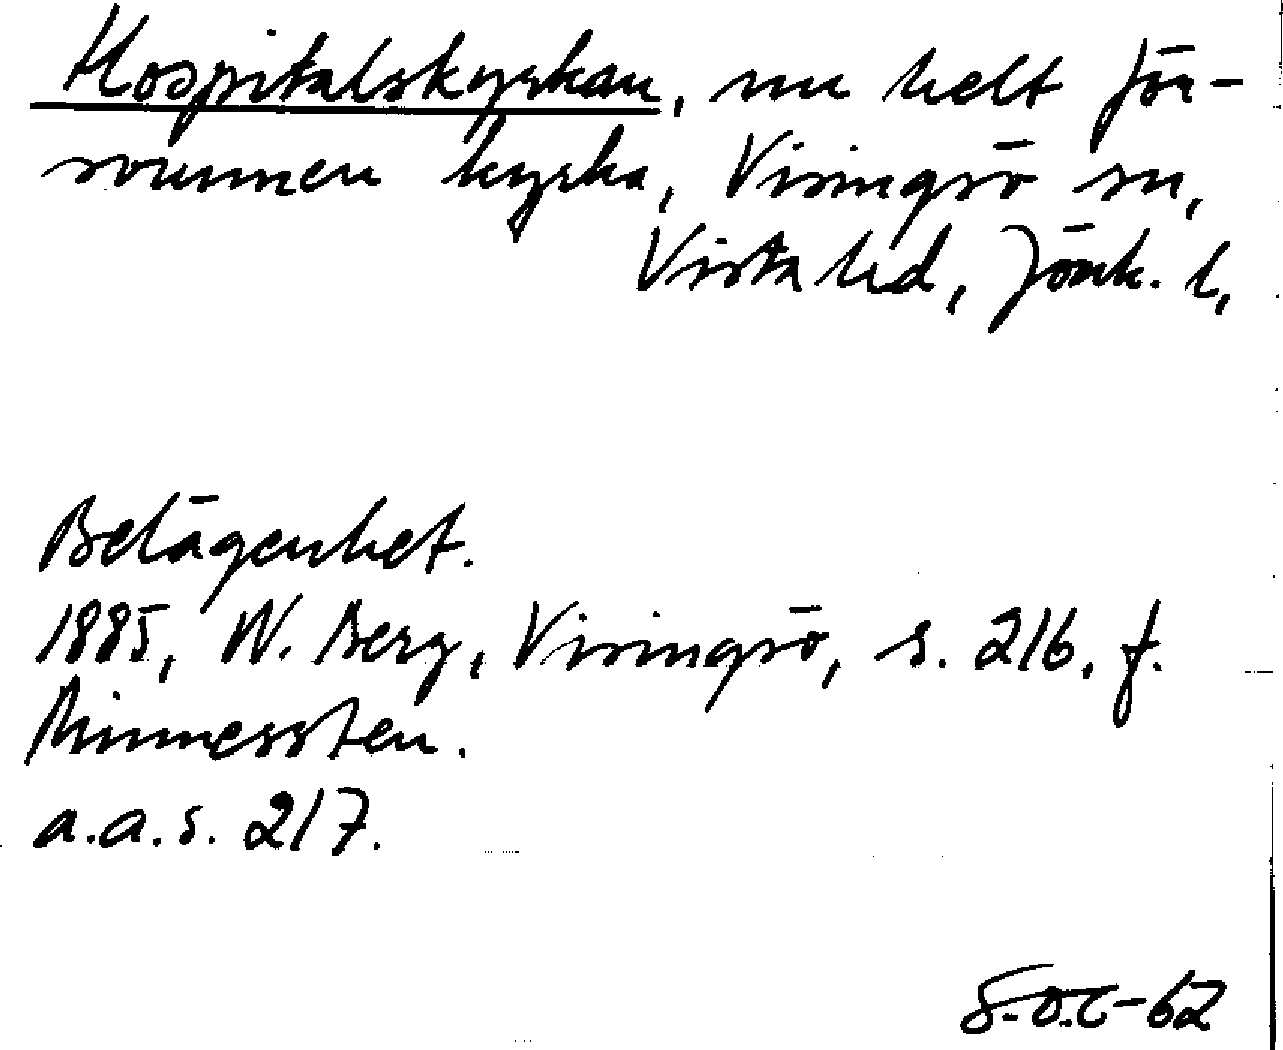 Hospitalskyrkan, nu helt för-
svunnen kyrka, Visingsö sn,
Vista hd, Jönk. l,
Belägenhet.
1885, W. Berg, Visingsö, s. 216. f.
Minnessten.
a.a.s. 217.
S.O.C-62